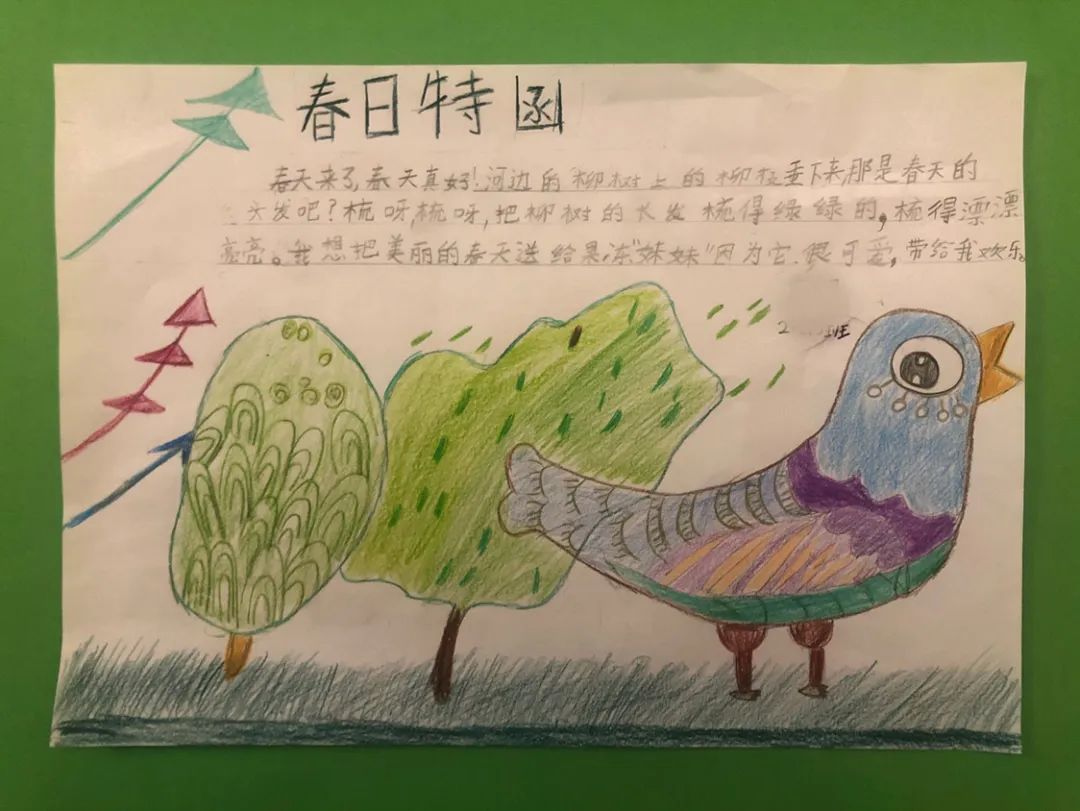 春日特函
春天来了,春天真好!河边的柳树上的柳枝垂下来,那是春天的
头发吧?梳呀,梳呀,把柳树的长发梳得绿绿的,梳得漂漂
亮亮。我想把美丽的春天送给果冻"妹妹"因为它很可爱,带给我欢乐。